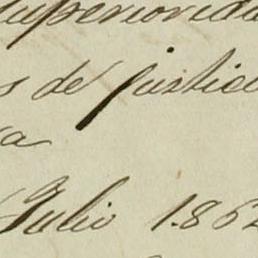 superiorida
s de justicia
ra
Julio 1862